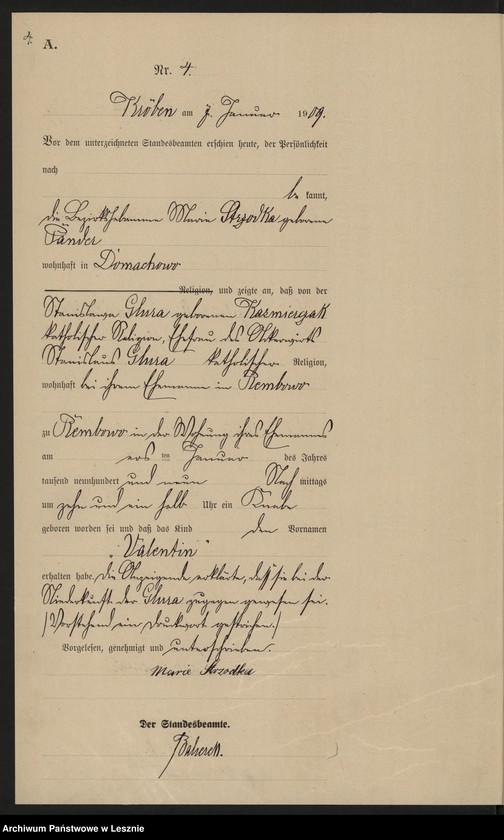 4.
A.
Nr. 4.
Kröben am 7. Januar 1909.
Vor dem unterzeichneten Standesbeamten erschien heute, der Persönlichkeit
nach
be kannt,
die Bezirkshebamme Marie Strzodka geborene
Pander
wohnhaft in Domachowo
Religion, und zeigte an, daß von der
Stanislawa Glura geborenen Kazmierzak
katholischer Religion, Ehefrau des Ackerwirts
Stanislaus Glura katholischer Religion,
wohnhaft bei ihrem Ehemanne in Rembowo
zu Rembowo in der Wohnung ihres Ehemannes
am ten Januar des Jahres
tausend neunhundert und neun Nach mittags
um zehn und ein halb Uhr ein Knabe
geboren worden sei und daß das Kind den Vornamen
"Valentin"
erhalten habe. Die Anzeigende erklärte, daß sie bei der
Niederkunft der Glura zugegen gewesen sei.
/Vorstehend ein Druckwort gestrichen./
Vorgelesen, genehmigt und unterschrieben.
Marie Strzodka
Der Standesbeamte.
Archiwum Państwowe w Lesznie